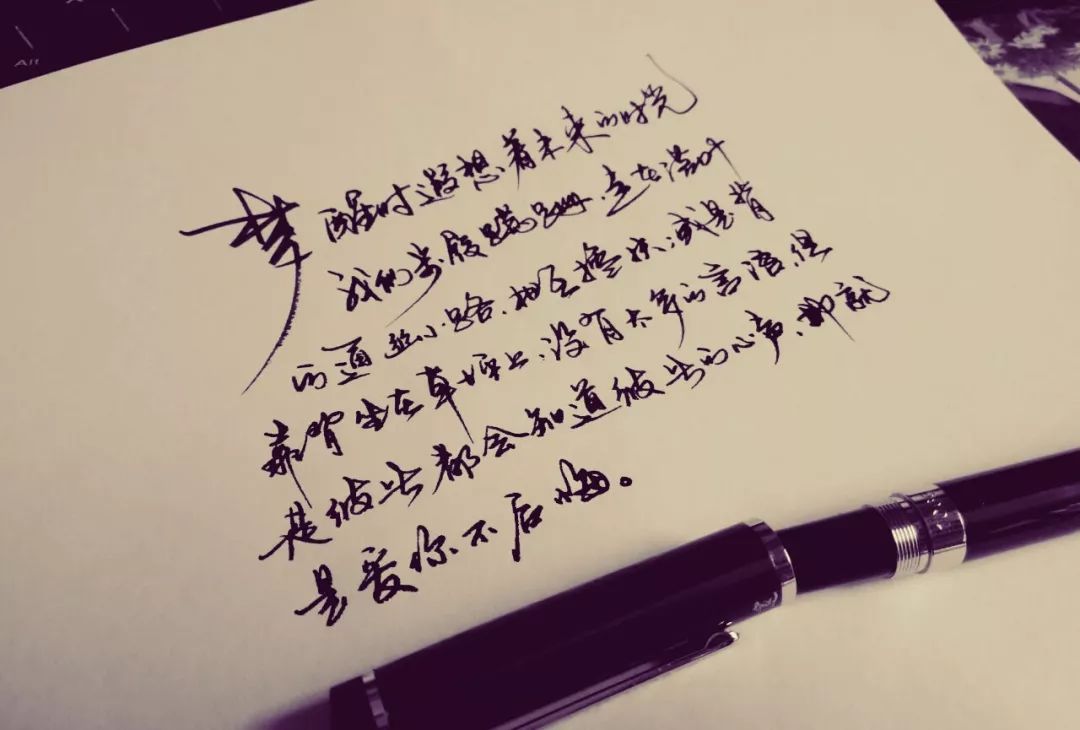 Alt
梦醒时遐想着未来的时光
我们步履蹒跚、走在落叶
的通幽小路、相互搀扶、或是背
靠背坐在草坪上、没有太多的言语、但
是彼此都会知道彼此的心声、那就
是爱你不后悔。